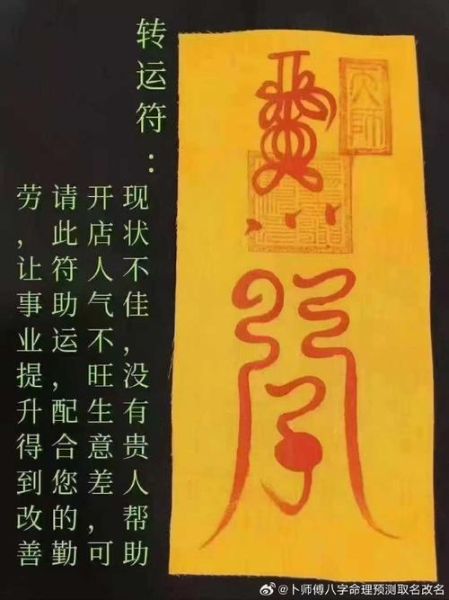 转运符：
现状不佳，没有贵人帮助
开店人气不旺生意差，可
请此符助运，配合您的勤
劳，让事业提升得到改善
天师
@卜师傅八字命理预测取名改名